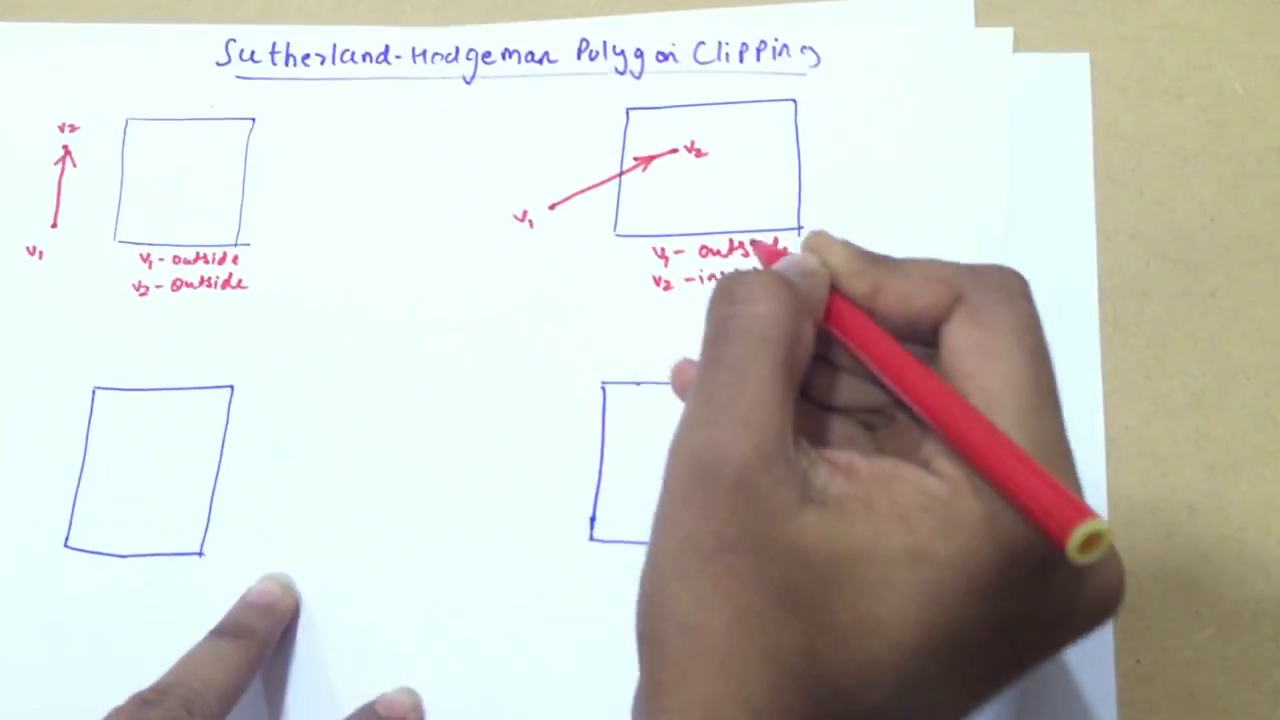 Sutherland-Hodgeman Polygon Clipping
v2
v1
v1-outside
v2-outside
v2
v1
v1- outside
v2